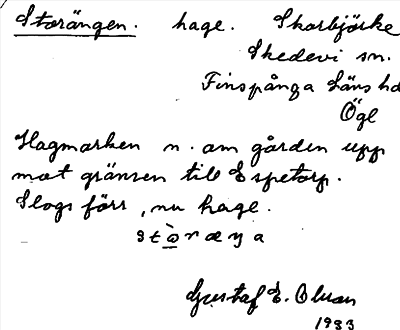 Storängen. hage. Skarbjörke
Skedevi sn.
Finspånga läns hd
Ögl
Hagmarken n. om gården upp
mot gränsen till Espetorp.
Slogs förr, nu hage.
stòræŋa
Gustaf E. Olsson
1933